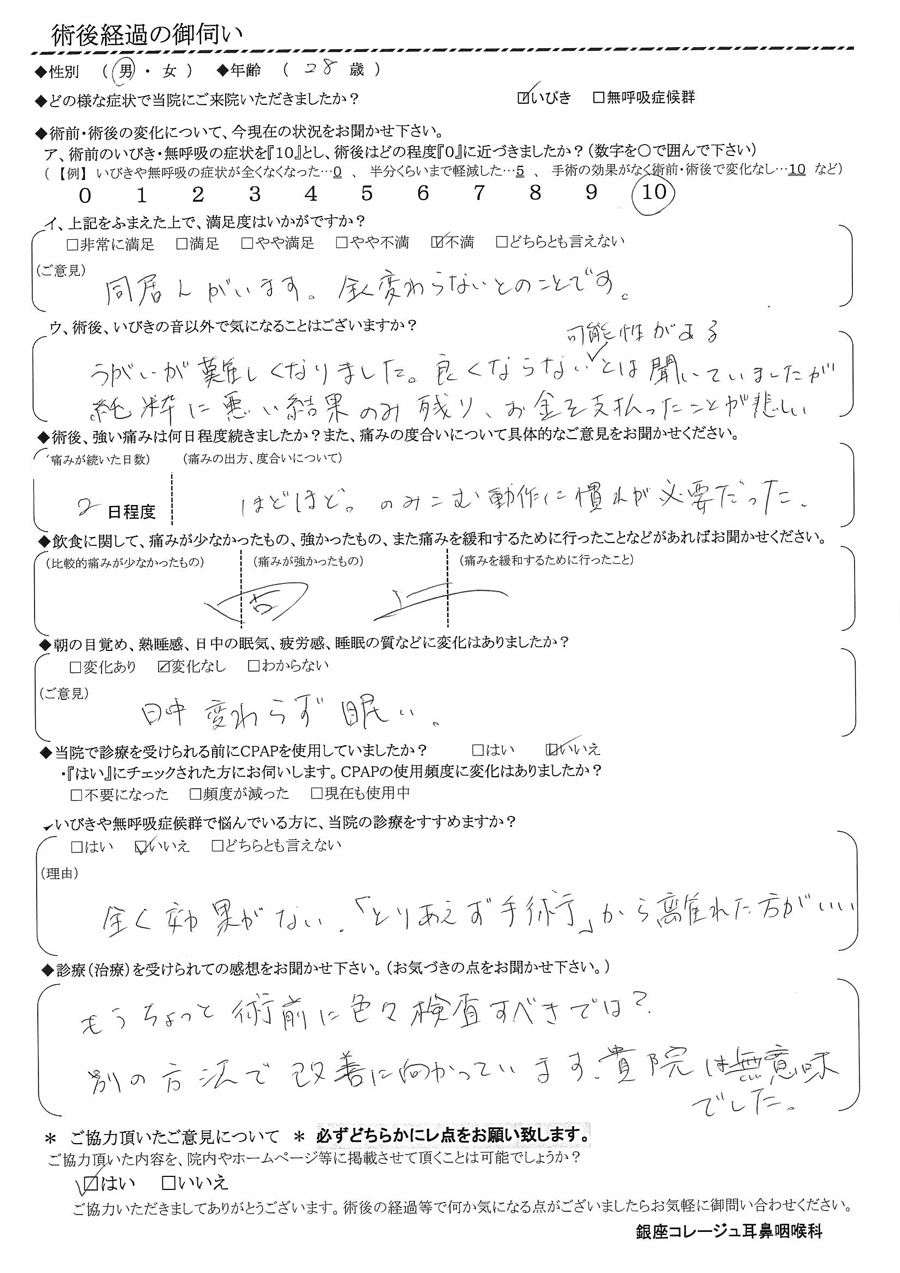 術後経過の御伺い
◆性別 （ 男 ・ 女 ） ◆年齢 （ 28 歳 ）
◆どの様な症状で当院にご来院いただきましたか？ ☑いびき □無呼吸症候群
◆術前・術後の変化について、今現在の状況をお聞かせ下さい。
ア、術前のいびき・無呼吸の症状を『10』とし、術後はどの程度『0』に近づきましたか？（数字を〇で囲んで下さい）
（ 【例】 いびきや無呼吸の症状が全くなくなった…0 、 半分くらいまで軽減した…5 、 手術の効果がなく術前・術後で変化なし…10 など）
0 1 2 3 4 5 6 7 8 9 10
イ、上記をふまえた上で、満足度はいかがですか？
□非常に満足 □満足 □やや満足 □やや不満 ☑不満 □どちらとも言えない
（ご意見）
同居人がいます。全く変わらないとのことです。
ウ、術後、いびきの音以外で気になることはございますか？
可能性がある
うがいが難しくなりました。良くならない✓とは聞いていましたが
純粋に悪い結果のみ残り、お金を支払ったことが悲しい
◆術後、強い痛みは何日程度続きましたか？また、痛みの度合いについて具体的なご意見をお聞かせください。
（痛みが続いた日数） （痛みの出方、度合いについて）
2 日程度 ほどほど。のみこむ動作に慣れが必要だった。
◆飲食に関して、痛みが少なかったもの、強かったもの、また痛みを緩和するために行ったことなどがあればお聞かせください。
（比較的痛みが少なかったもの） （痛みが強かったもの） （痛みを緩和するために行ったこと）
◆朝の目覚め、熟睡感、日中の眠気、疲労感、睡眠の質などに変化はありましたか？
□変化あり ☑変化なし □わからない
（ご意見）
日中変わらず眠い。
◆当院で診療を受けられる前にCPAPを使用していましたか？ □はい ☑いいえ
・『はい』にチェックされた方にお伺いします。CPAPの使用頻度に変化はありましたか？
□不要になった □頻度が減った □現在も使用中
いびきや無呼吸症候群で悩んでいる方に、当院の診療をすすめますか？
□はい ☑いいえ □どちらとも言えない
（理由）
全く効果がない。「とりあえず手術」から離れた方がいい
◆診療（治療）を受けられての感想をお聞かせ下さい。（お気づきの点をお聞かせ下さい。）
もうちょっと術前に色々検査すべきでは？
別の方法で改善に向かっています。貴院は無意味
でした。
＊ ご協力頂いたご意見について ＊ 必ずどちらかにレ点をお願い致します。
ご協力頂いた内容を、院内やホームページ等に掲載させて頂くことは可能でしょうか？
☑はい □いいえ
ご協力いただきましてありがとうございます。術後の経過等で何か気になる点がございましたらお気軽に御問い合わせください。
銀座コレージュ耳鼻咽喉科